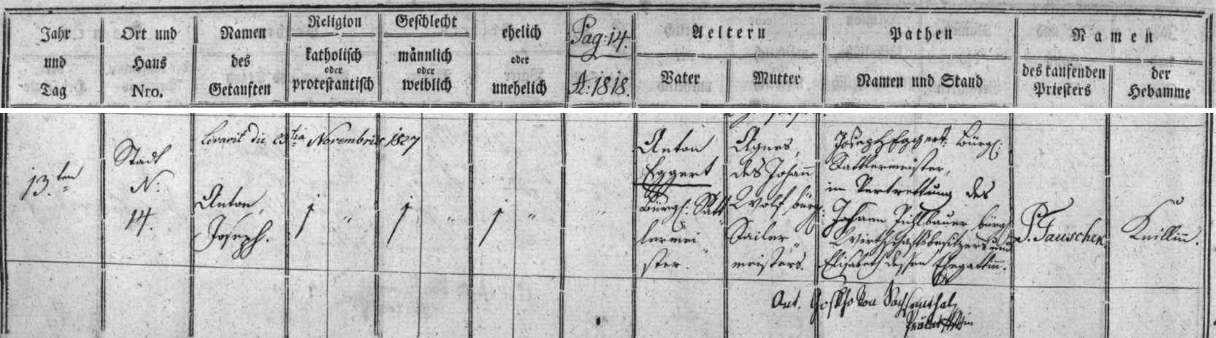 Jahr und Tag
Ort und Haus Nro.
Namen des Getauften
Religion
katholisch oder protestantisch
Geschlecht
männlich oder weiblich
ehelich oder unehelich
Pag: 14.
A: 1818.
Aeltern
Vater
Mutter
Pathen
Namen und Stand
Namen
des taufenden Priesters
der Hebamme
13.ten
Stadt
N:
14.
die Novembris 1807
Anton
Joseph.
Anton
Eggert
bürgl: Satt
lermei
ster.
Agnes,
des Johann
Wolf, bürg:
Sailer
meisters.
Joseph Eggert, bürgl:
Sattlermeister,
im Vertrettung des
Johann bürgl:
Wirthschaftsbesitzers und
Elisabeth dessen Ehegattin.
P. Tauschek
Ant. von